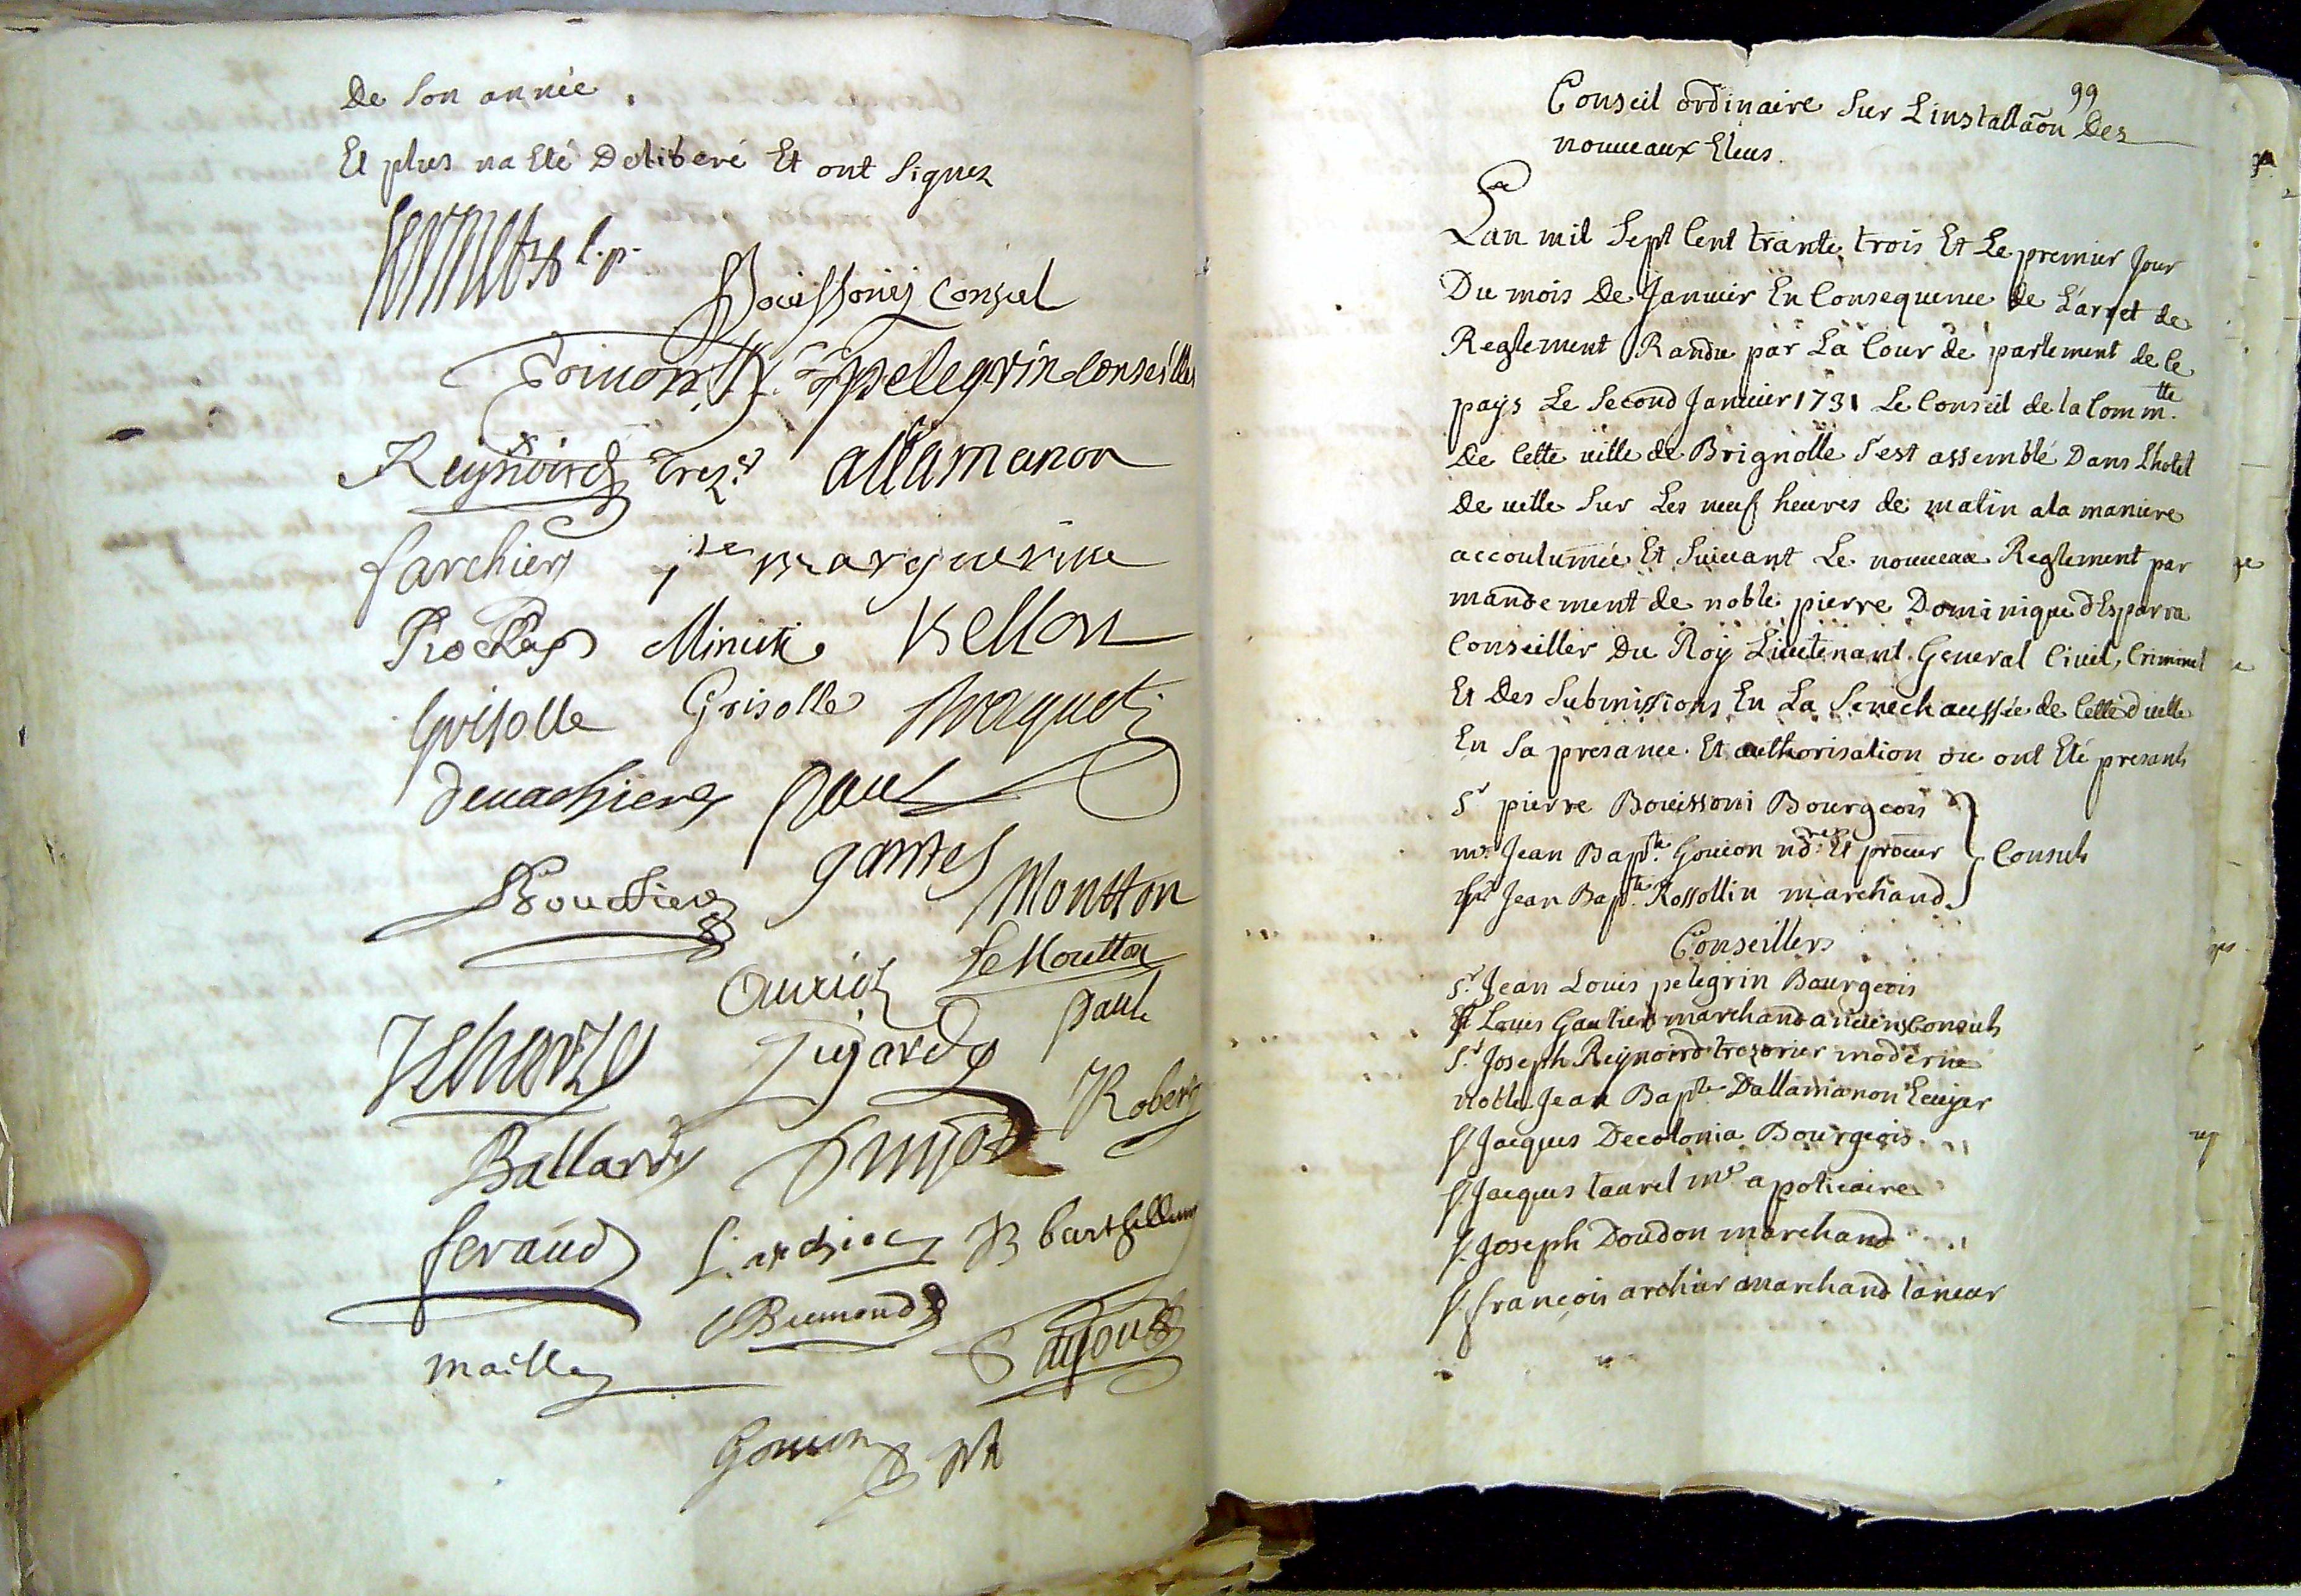 De son année.
Et plus na Eté Deliberé Et ont Signez
l.p.
Bouissony Consul
pelegrin Conseiller
Reynoird Trez.r allamanon
f archier
Minuti Bellon
Grisolle Grisolle Braquety
Devachieres paul
gantes
Boustier Montton
Auriol Le Moutton
paul
Pujard
Robert
Ballard
feraud f. archier B barthellemy
Bremond
mailley
Gouion
99
Conseil ordinaire Sur Linstallaõn Des
nouueaux Eleus.
Lan mil Sept Cent trante trois Et Le premier Jour
Du mois de Januier En Consequence de L'arret de
Reglement Randu par La Cour de parlement de Ce
pays Le Second Januier 1731 Le Conseil de la Comm.tte
De Cette uille de Brignolle S'est assemblé Dans Lhotel
De uille Sur Les neuf heures de matin a la maniere
accoutumée Et Suiuant Le nouueau Reglement par
mandement de noble pierre Dominique d'Esparra
Conseiller Du Roy Lieutenant General Ciuil, Criminel
Et Des Submissions En La Senechaussée de Cette d uille
En Sa presance Et authorisation ou ont Eté presants
S.r pierre Bouissoni Bourgeois
m.e Jean Bap.te Gouion nd.re Et procur Consuls
S.r Jean Bap.te Rossollin marchand
Conseillers
S.r Jean Louis pelegrin Bourgeois
S.r Louis Gautier marchand anciens Consuls
S.r Joseph Reynoird trezorier moderne
noble Jean Bap.te Dallamanon Ecuyer
S.r Jacques Decolonia Bourgeois
S.r Jacques taurel m.e apoticaire
S.r Joseph Doudon marchand
S.r françois archier marchand taneur